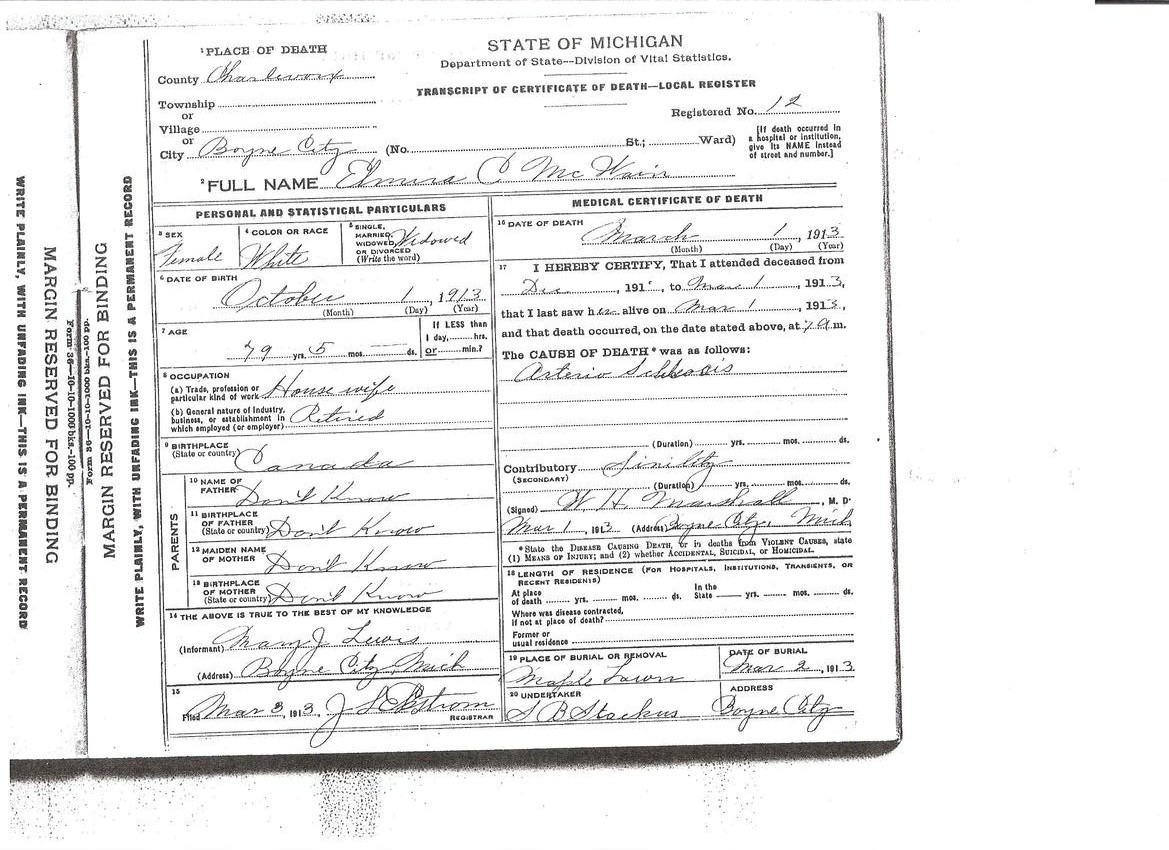 STATE OF MICHIGAN
Department of State—Division of Vital Statistics.
TRANSCRIPT OF CERTIFICATE OF DEATH—LOCAL REGISTER
1 PLACE OF DEATH
County Charlevoix
Township
or
Village
or
City Boyne City (No. St.; Ward)
Registered No. 12
[If death occurred in
a hospital or institution,
give its NAME instead
of street and number.]
2 FULL NAME Elmira C McWain
PERSONAL AND STATISTICAL PARTICULARS
3 SEX
Female
4 COLOR OR RACE
White
5 SINGLE,
MARRIED,
WIDOWED, Widowed
OR DIVORCED
(Write the word)
6 DATE OF BIRTH
October 1, 1913
(Month) (Day) (Year)
7 AGE
79 yrs. 5 mos. ds.
If LESS than
1 day, hrs.
or min.?
8 OCCUPATION
(a) Trade, profession or
particular kind of work House wife
(b) General nature of industry,
business, or establishment in
which employed (or employer) Retired
9 BIRTHPLACE
(State or country) Canada
PARENTS
10 NAME OF
FATHER Don't Know
11 BIRTHPLACE
OF FATHER
(State or country) Don't Know
12 MAIDEN NAME
OF MOTHER Don't Know
13 BIRTHPLACE
OF MOTHER
(State or country) Don't Know
14 THE ABOVE IS TRUE TO THE BEST OF MY KNOWLEDGE
(Informant) Mary J Lewis
(Address) Boyne City, Mich
15
Filed Mar 3, 1913, J
REGISTRAR
MEDICAL CERTIFICATE OF DEATH
16 DATE OF DEATH
March 1, 1913
(Month) (Day) (Year)
17 I HEREBY CERTIFY, That I attended deceased from
Dec, 191, to Mar 1 1913,
that I last saw her alive on Mar 1, 1913,
and that death occurred, on the date stated above, at 7 a m.
The CAUSE OF DEATH* was as follows:
Arterio
(Duration) yrs. mos. ds.
Contributory
(SECONDARY)
(Duration) yrs. mos. ds.
(Signed) W H. Marshall, M. D.
Mar 1, 1913 (Address) Boyne City, Mich
*State the DISEASE CAUSING DEATH, or in deaths from VIOLENT CAUSES, state
(1) MEANS OF INJURY; and (2) whether ACCIDENTAL, SUICIDAL, or HOMICIDAL.
18 LENGTH OF RESIDENCE (FOR HOSPITALS, INSTITUTIONS, TRANSIENTS, OR
RECENT RESIDENTS)
At place
of death yrs. mos. ds.
In the
State yrs. mos. ds.
Where was disease contracted,
if not at place of death?
Former or
usual residence
19 PLACE OF BURIAL OR REMOVAL
Maple Lawn
DATE OF BURIAL
Mar 2, 1913
20 UNDERTAKER
S B Stackus
ADDRESS
Boyne City
WRITE PLAINLY, WITH UNFADING INK—THIS IS A PERMANENT RECORD
MARGIN RESERVED FOR BINDING
Form 36—10-10-1000 bks.-100 pp.
Form 36—10-10-1000 bks-100 pp.
MARGIN RESERVED FOR BINDING
WRITE PLAINLY, WITH UNFADING INK—THIS IS A PERMANENT RECORD